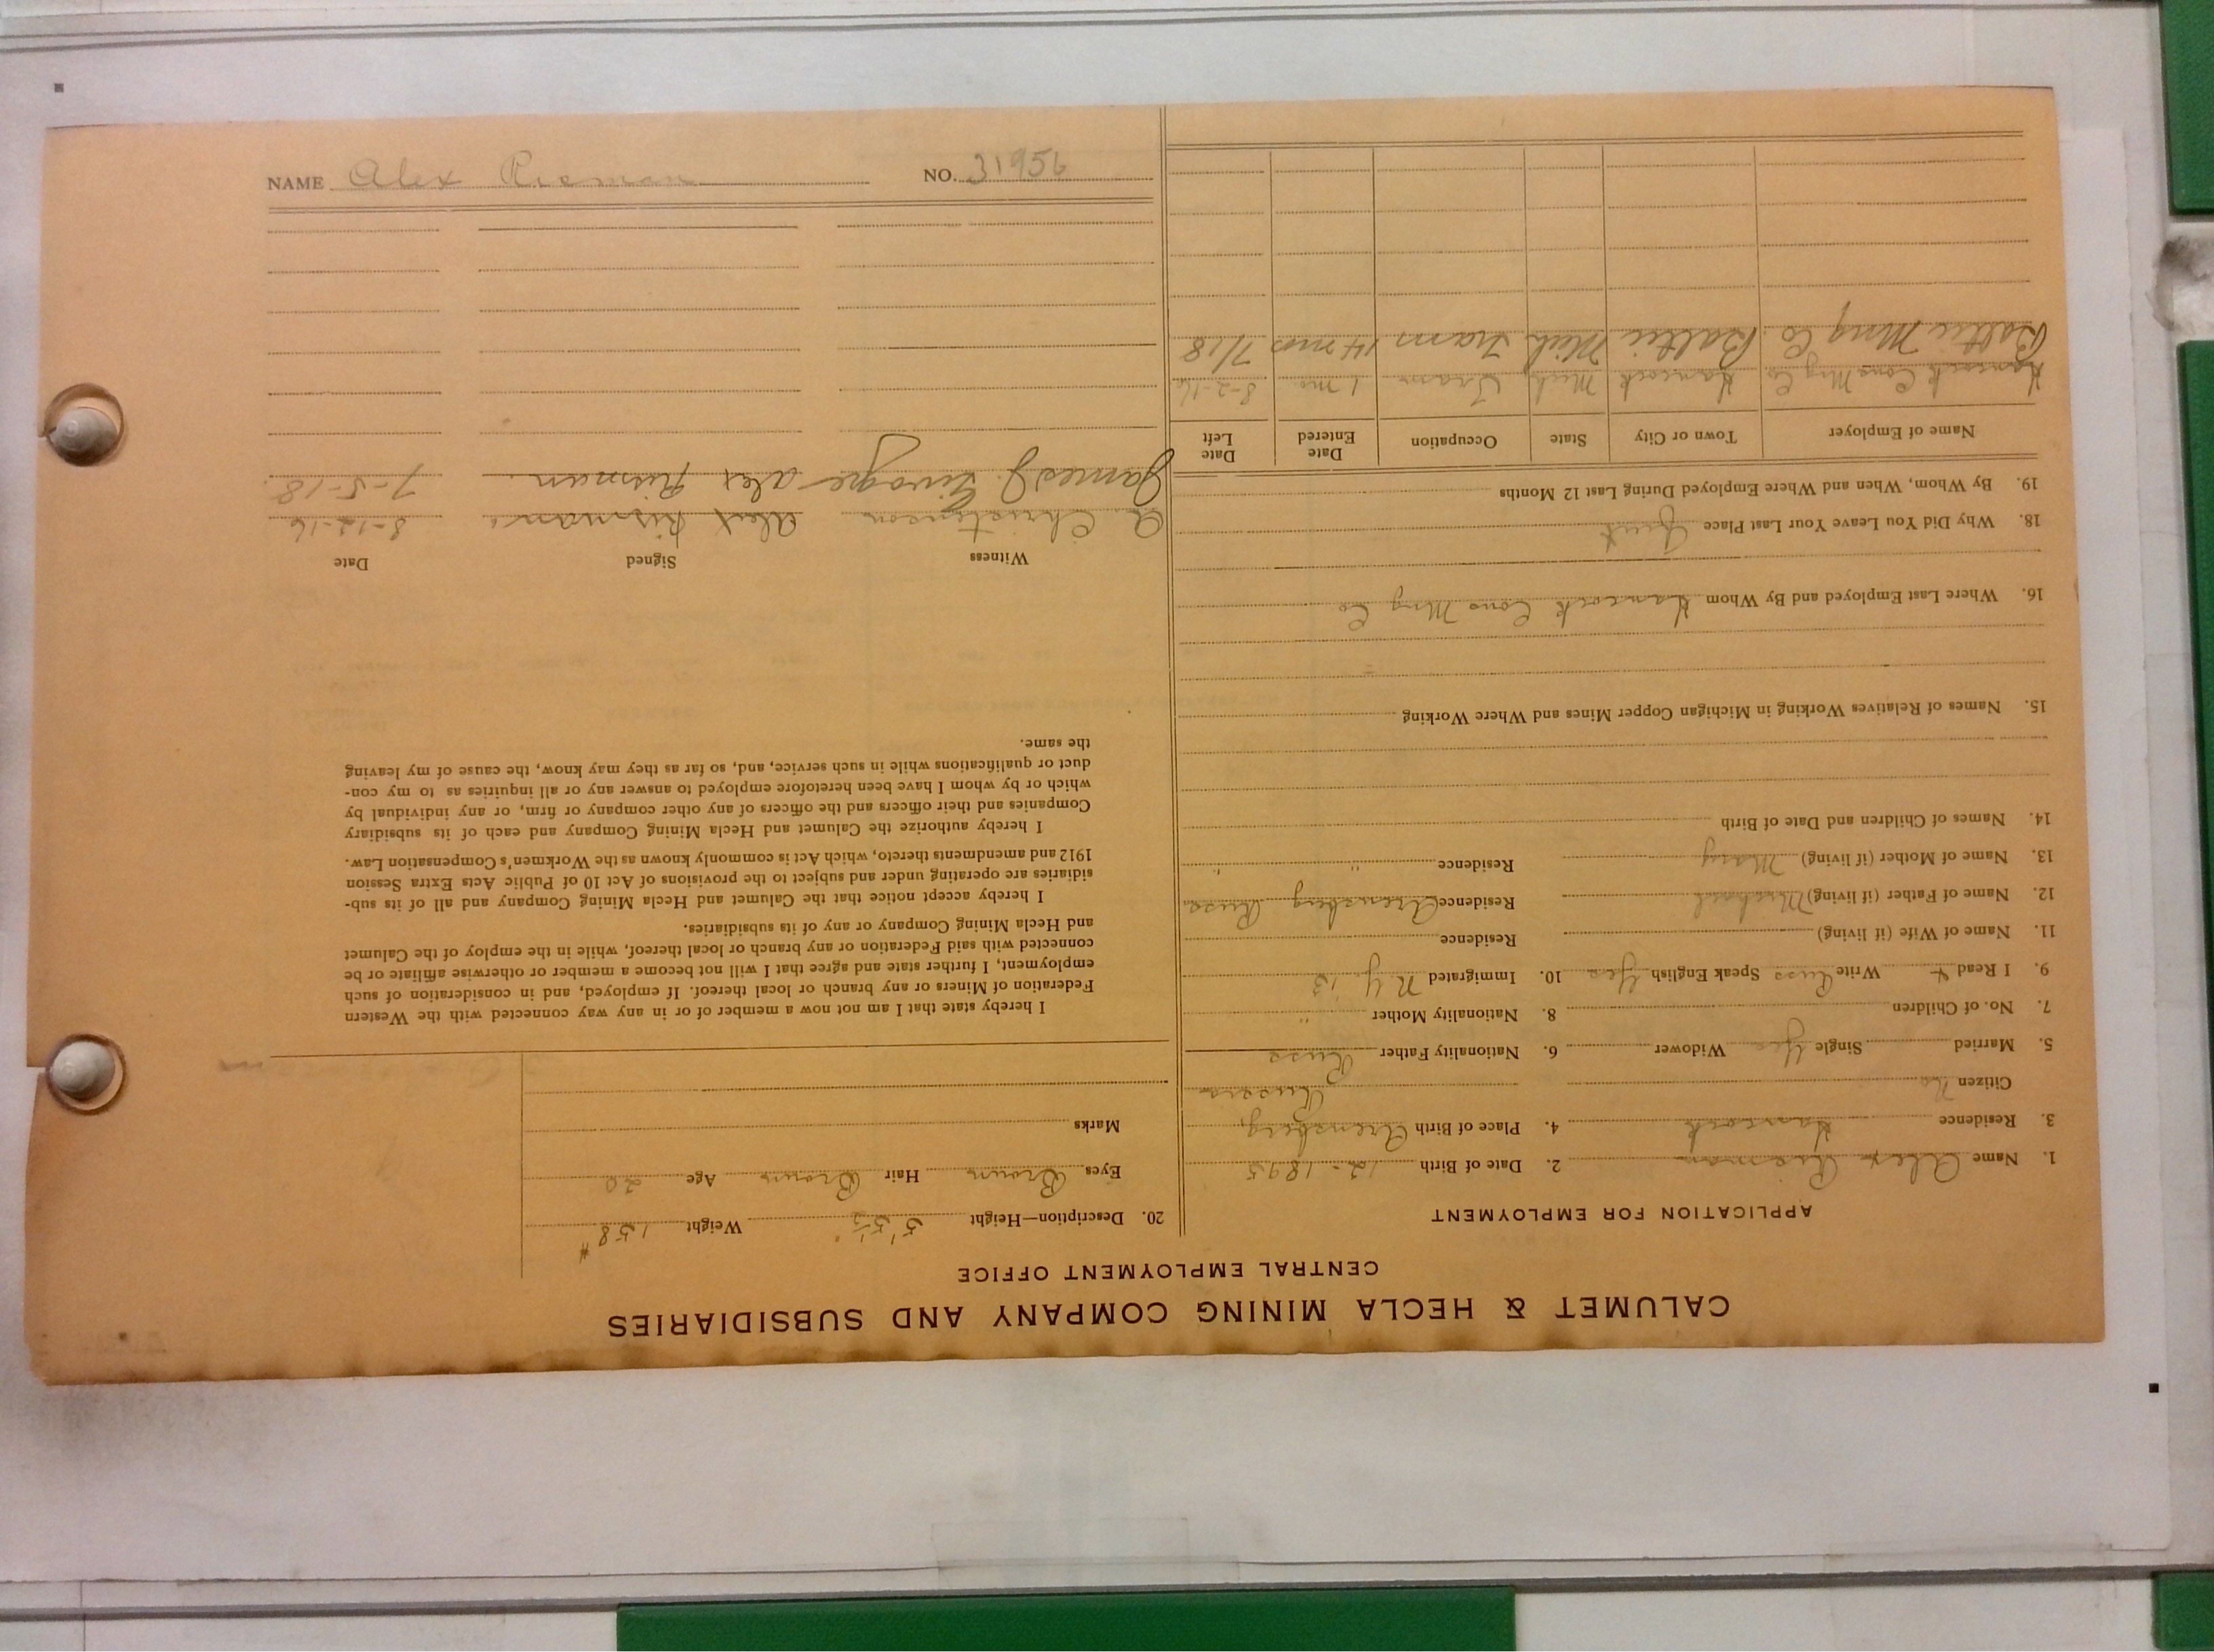 CALUMET & HECLA MINING COMPANY AND SUBSIDIARIES
CENTRAL EMPLOYMENT OFFICE
APPLICATION FOR EMPLOYMENT
1. Name Alex Risman 2. Date of Birth 12-1895
3. Residence Hancock 4. Place of Birth
Citizen No Russia
5. Married Single Yes Widower 6. Nationality Father Russ
7. No. of Children 8. Nationality Mother "
9. I Read & Write Russ Speak English Yes 10. Immigrated N.Y. 13
11. Name of Wife (if living) Residence
12. Name of Father (if living) Michael Residence Russ
13. Name of Mother (if living) Mary Residence " "
14. Names of Children and Date of Birth
15. Names of Relatives Working in Michigan Copper Mines and Where Working
16. Where Last Employed and By Whom Hancock Cons Mng Co
18. Why Did You Leave Your Last Place Quit
19. By Whom, When and Where Employed During Last 12 Months
Name of Employer Town or City State Occupation Date Entered Date Left
Hancock Cons Mng Co Hancock Mich Tram 1 mo 8-2-16
Baltic Mng Co Baltic Mich Tram 14 mos 7/18
20. Description—Height 5' 5½" Weight 158#
Eyes Brown Hair Brown Age 20
Marks
I hereby state that I am not now a member of or in any way connected with the Western
Federation of Miners or any branch or local thereof. If employed, and in consideration of such
employment, I further state and agree that I will not become a member or otherwise affiliate or be
connected with said Federation or any branch or local thereof, while in the employ of the Calumet
and Hecla Mining Company or any of its subsidiaries.
I hereby accept notice that the Calumet and Hecla Mining Company and all of its sub-
sidiaries are operating under and subject to the provisions of Act 10 of Public Acts Extra Session
1912 and amendments thereto, which Act is commonly known as the Workmen's Compensation Law.
I hereby authorize the Calumet and Hecla Mining Company and each of its subsidiary
Companies and their officers and the officers of any other company or firm, or any individual by
which or by whom I have been heretofore employed to answer any or all inquiries as to my con-
duct or qualifications while in such service, and, so far as they may know, the cause of my leaving
the same.
Witness Signed Date
A. Christenson Alex Risman. 8-12-16
James J. Alex Risman 7-5-18.
NAME Alex Risman NO. 31956